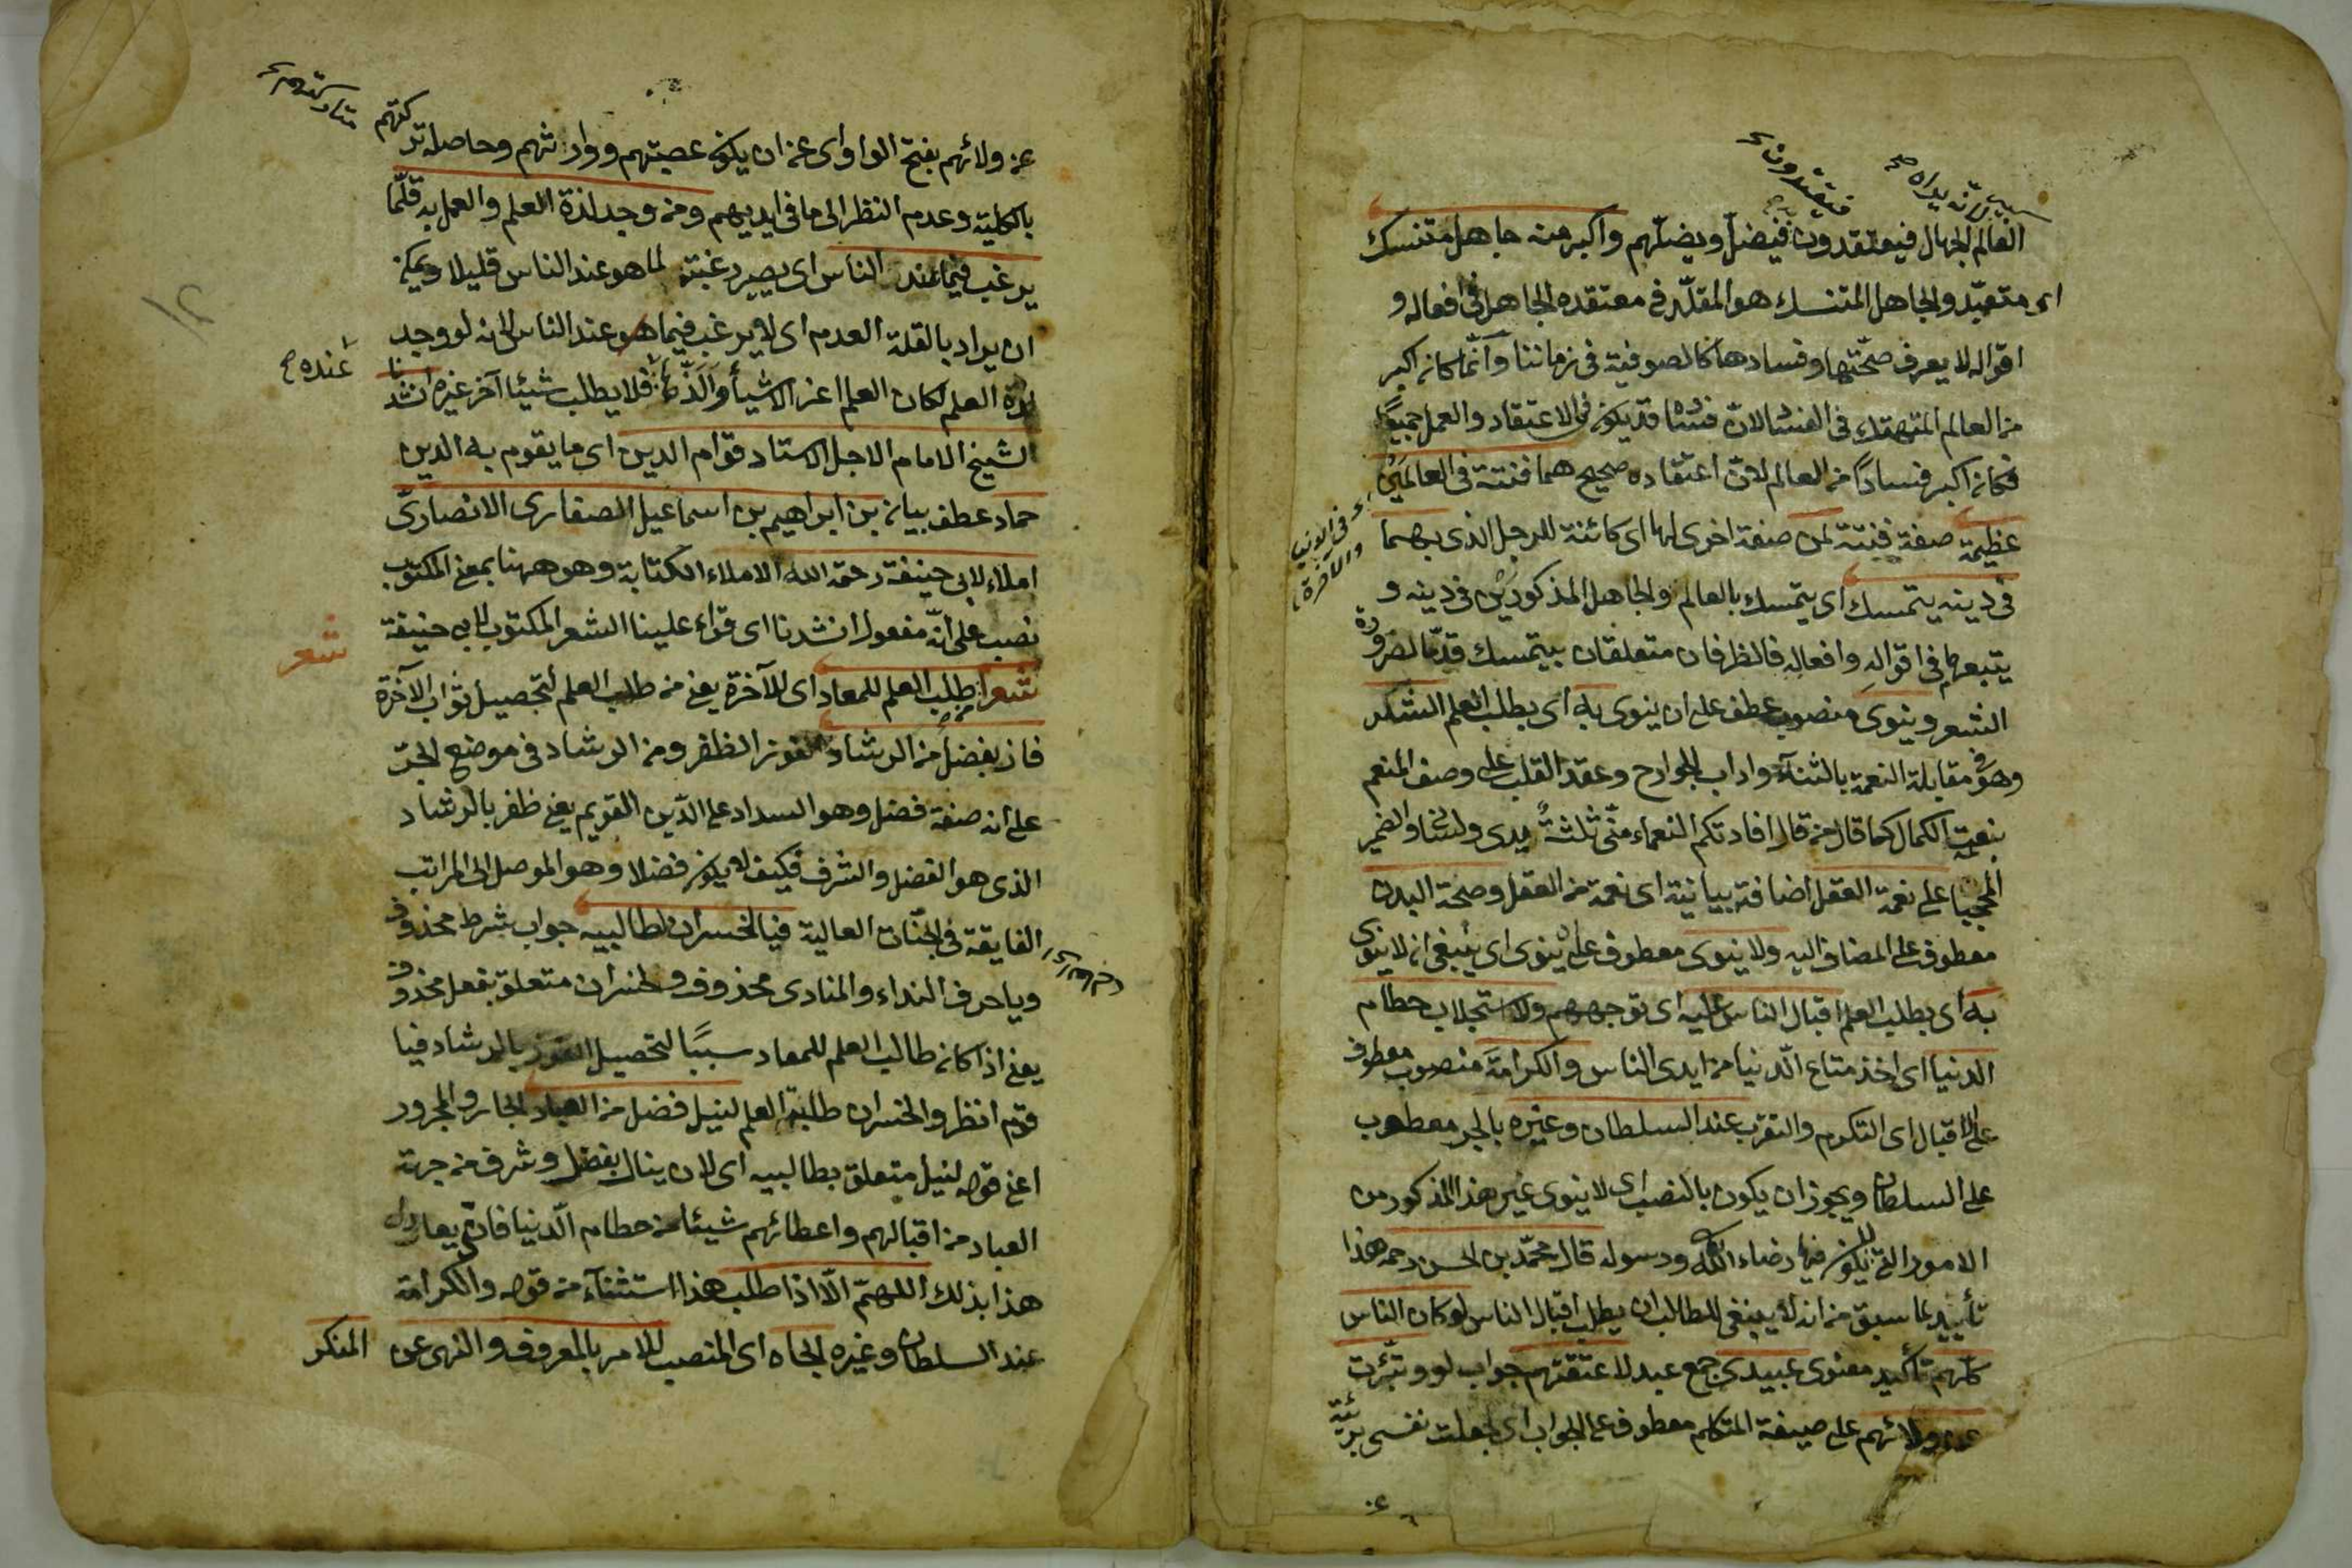 العالم الجهال فيعتقدون فيضل ويضلهم واكبر منه جاهل متنسك
اى متعبد والجاهل المتنسك هو المقلد فى معتقده الجاهل فى افعاله و
اقواله لا يعرف صحتها وفسادها كالصوفية فى زماننا وانما كان اكبر
من العالم المتهتك فى الفساد لان فساده قد يكون فى الاعتقاد والعمل جميعا
فكان اكبر فسادا من العالم لان اعتقاده صحيح هما فتنة فى العالمين
اى فى الدنيا والآخرة
عظيمة صفة فتنة لمن صفة اخرى لها اى كائنة للرجل الذى بهما
فى دينه يتمسك اى يتمسك بالعالم والجاهل المذكورين فى دينه و
يتبعهما فى اقواله وافعاله فالظرفان متعلقان بيتمسك قدما لضرورة
الشعر وينوى منصوب عطف على ان ينوى به اى بطلب العلم الشكر
وهو فى مقابلة النعمة بالثناء واداب الجوارح وعقد القلب على وصف المنعم
بنعت الكمال كما قال من قال افادتكم النعماء منى ثلثة يدى ولسانى والضمير
المحجبا على نعمة العقل اضافة بيانية اى نعمة من العقل وصحة البدن
معطوف على المضاف اليه ولا ينوى معطوف على ينوى اى ينبغى ان لا ينوى
به اى بطلب العلم اقبال الناس عليه اى توجههم ولا استجلاب حطام
الدنيا اى اخذ متاع الدنيا من ايدى الناس والكرامة منصوب معطوف
على اقبال اى التكرم والتقرب عند السلطان وغيره بالجر معطوب
على السلطان ويجوز ان يكون بالنصب اى لا ينوى غير هذا المذكور من
الامور التى لا يكون فيها رضاء الله ورسوله قال محمد بن الحسن رحمه هذا
تأييد لما سبق من انه لا ينبغى للطالب ان يطلب اقبال الناس لو كان الناس
كلهم تأكيد معنوى عبيدى جمع عبد لاعتقتهم جواب لو وتبرئت
عن ولائهم على صيغة المتكلم معطوف على الجواب اى لجعلت نفسى بريئة
عن ولائهم بفتح الواو اى عن ان يكون عصبتهم ووارثهم وحاصله تركتهم
بالكلية وعدم النظر الى ما فى ايديهم ومن وجد لذة العلم والعمل به قلما
يرغب فيما عند الناس اى يصير رغبته لما هو عند الناس قليلا ويمكن
ان يراد بالقلة العدم اى لا يرغب فيما هو عند الناس لانه لو وجد
لذة العلم لكان العلم اعز الاشياء والذها عنده فلا يطلب شيئا آخر غيره انشدنا
الشيخ الامام الاجل الاستاد قوام الدين اى ما يقوم به الدين
حماد عطف بيان بن ابراهيم بن اسماعيل الصفارى الانصارى
املاء لابى حنيفة رحمه الله الاملاء الكتابة وهو ههنا بمعنى المكتوب
نصب على انه مفعول انشدنا اى قراء علينا الشعر المكتوب لابى حنيفة
شعر
شعر من طلب العلم للمعاد اى للآخرة يعنى من طلب العلم لتحصيل ثواب الآخرة
فاز بفضل من الرشاد الفوز الظفر ومن الرشاد فى موضع الجر
على انه صفة فضل وهو السداد على الدين القويم يعنى ظفر بالرشاد
الذى هو الفضل والشرف فكيف لا يكون فضلا وهو الموصل الى المراتب
الفايقة فى الجنات العالية فيا لخسران لطالبيه جواب شرط محذوف
ويا حرف النداء والمنادى محذوف ولخسران متعلق بفعل محذوف
يعنى اذا كان طالب العلم للمعاد سببا لتحصيل الفوز بالرشاد فيا
قوم انظروا لخسران طلبة العلم لنيل فضل من العباد الجار والمجرور
اعنى قوله لنيل متعلق بطالبيه اى لان ينال بفضل وشرف من جهة
العباد من اقبالهم واعطائهم شيئا من حطام الدنيا فان يعادل
هذا بذلك اللهم الا اذا طلب هذا استثناء من قوله والكرامة
عند السلطان وغيره الجاه اى المنصب للامر بالمعروف والنهى عن المنكر